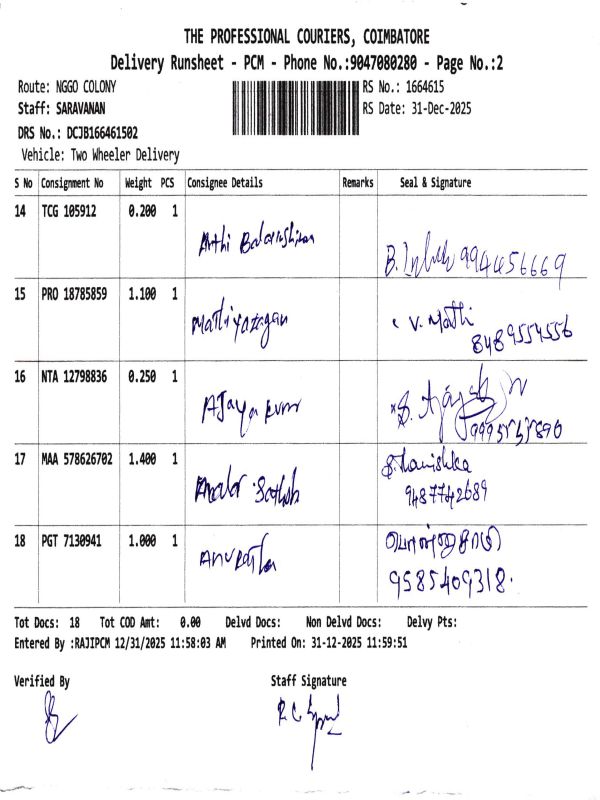 THE PROFESSIONAL COURIERS, COIMBATORE
Delivery Runsheet - PCM - Phone No.:9047080280 - Page No.:2
Route: NGGO COLONY
RS No.: 1664615
Staff: SARAVANAN
RS Date: 31-Dec-2025
DRS No.: DCJB166461502
Vehicle: Two Wheeler Delivery
S No Consignment No Weight PCS Consignee Details Remarks Seal & Signature
14 TCG 105912 0.200 1
Arthi
B. 9944456669
15 PRO 18785859 1.100 1
Mathiyazagan V. Mathi
8489554556
16 NTA 12798836 0.250 1
Ajaya kumar
17 MAA 578626702 1.400 1
S. Thanishka
Sathish 9487742689
18 PGT 7130941 1.000 1
Anuratha
9585409318.
Tot Docs: 18 Tot COD Amt: 0.00 Delvd Docs: Non Delvd Docs: Delvy Pts:
Entered By :RAJIPCM 12/31/2025 11:58:03 AM Printed On: 31-12-2025 11:59:51
Verified By Staff Signature
R.C.